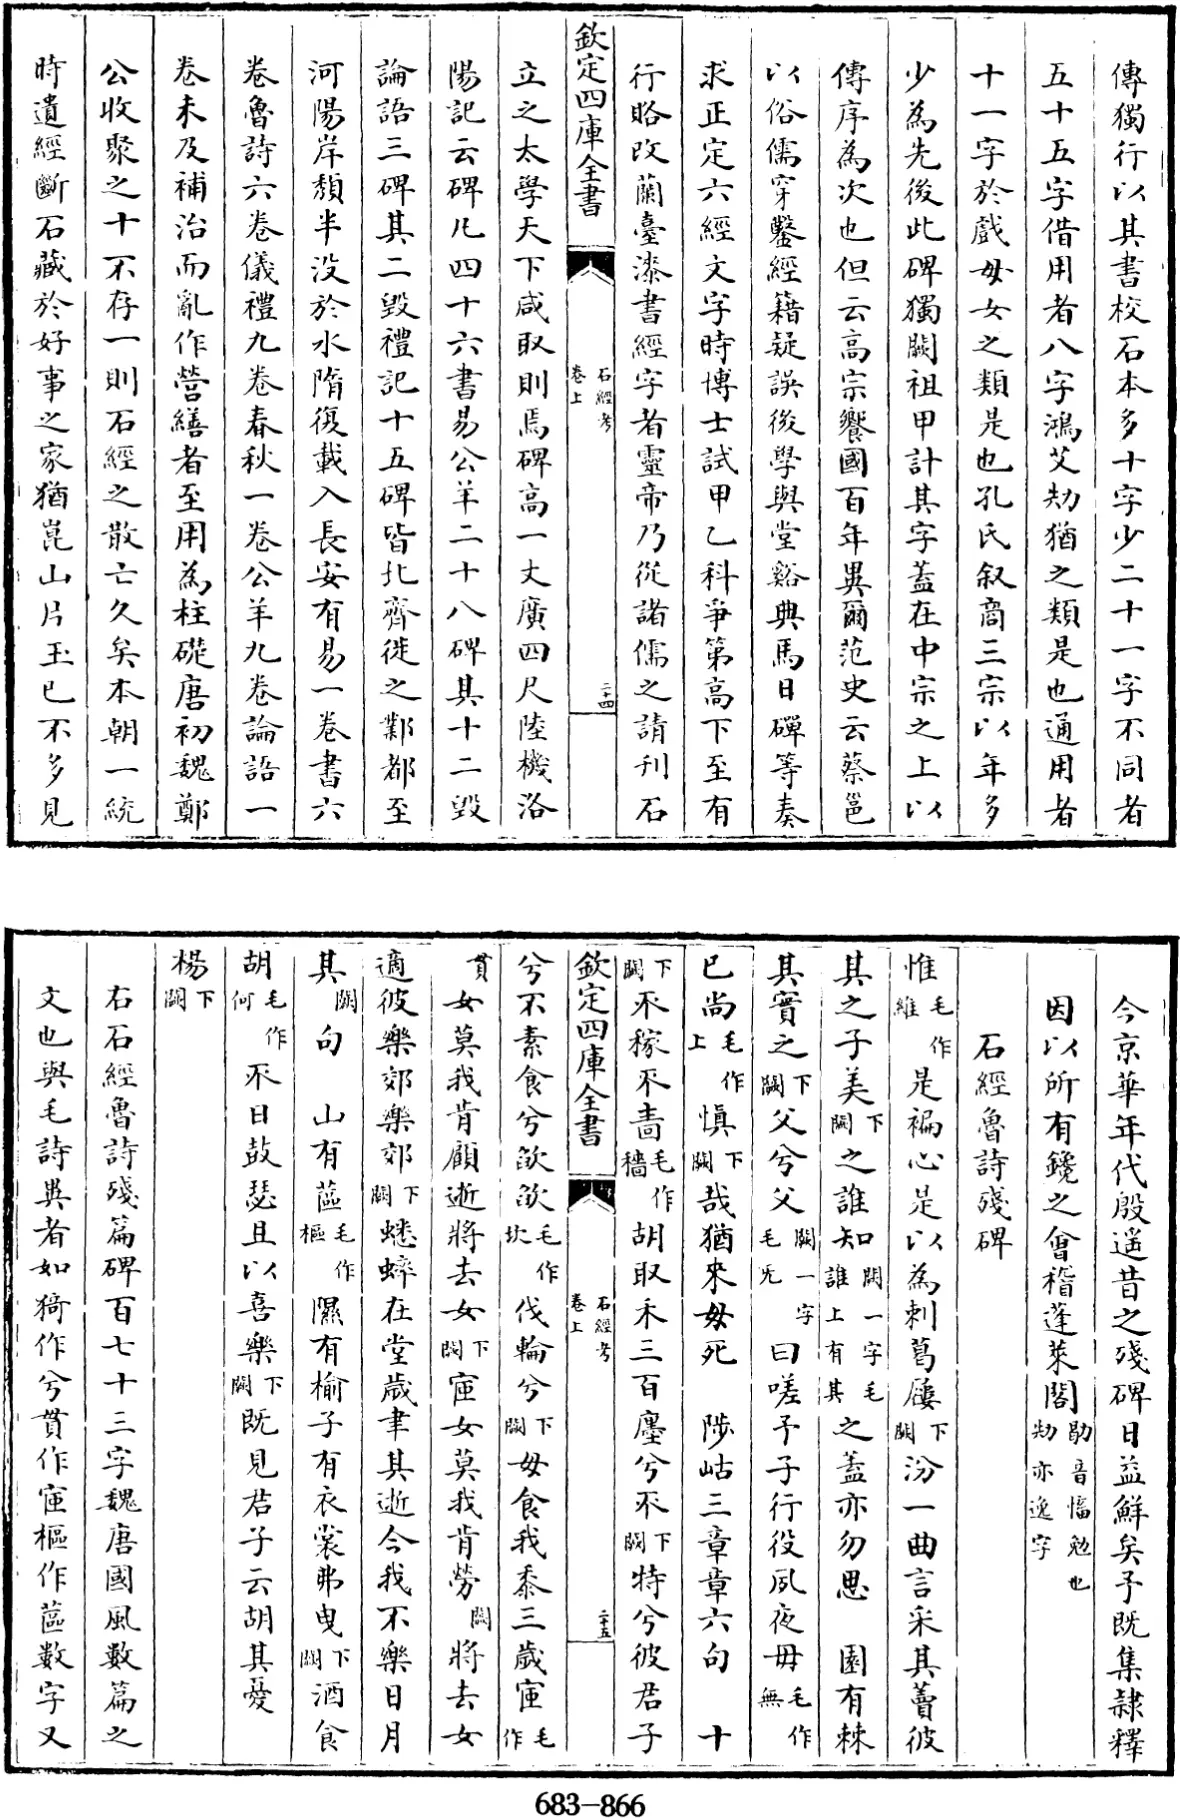 傳獨行以其書校石本多十字少二十一字不同者
五十五字借用者八字鴻艾劮猶之類是也通用者
十一字於戲毋女之類是也孔氏叙商三宗以年多
少為先後此碑獨闕祖甲計其字蓋在中宗之上以
傳序為次也但云高宗饗國百年異爾范史云蔡邕
以俗儒穿鑿經籍疑誤後學與堂谿典馬日磾等奏
求正定六經文字時博士試甲乙科爭第高下至有
行賂改蘭臺漆書經字者靈帝乃從諸儒之請刊石
欽定四庫全書 石經考卷上 二十四
立之太學天下咸取則焉碑高一丈廣四尺陸機洛
陽記云碑凡四十六書易公羊二十八碑其十二毀
論語三碑其二毀禮記十五碑皆北齊徙之鄴都至
河陽岸頹半没於水隋復載入長安有易一卷書六
卷魯詩六卷儀禮九卷春秋一卷公羊九卷論語一
卷未及補治而亂作營繕者至用為柱礎唐初魏鄭
公收聚之十不存一則石經之散亡久矣本朝一統
時遺經斷石藏於好事之家猶崑山片玉已不多見
今京華年代殷遥昔之殘碑日益鮮矣予既集隷釋
因以所有鑱之會稽蓬萊閣勖音愊勉也劮亦逸字
石經魯詩殘碑
惟毛作維是褊心是以為刺葛屨下闕汾一曲言采其藚彼
其之子美下闕之誰知闕一字毛誰上有其之蓋亦勿思 園有棘
其實之下闕父兮父闕一字毛旡曰嗟予子行役夙夜毋毛作無
已尚毛作上慎下闕哉猶來毋死 陟岵三章章六句 十
下闕不稼不嗇毛作穡胡取禾三百廛兮不下闕特兮彼君子
欽定四庫全書 石經考卷上 二十五
兮不素食兮欿欿毛作坎伐輪兮下闕毋食我黍三歲宦毛作
貫女莫我肯顧逝將去女下闕宦女莫我肯勞闕將去女
適彼樂郊樂郊下闕蟋蟀在堂歲聿其逝今我不樂日月
其闕句 山有蓲毛作樞隰有榆子有衣裳弗曳下闕酒食
胡毛作何不日鼓瑟且以喜樂下闕既見君子云胡其憂
楊下闕
右石經魯詩殘篇碑百七十三字魏唐國風數篇之
文也與毛詩異者如猗作兮貫作宦樞作蓲數字又
683-866